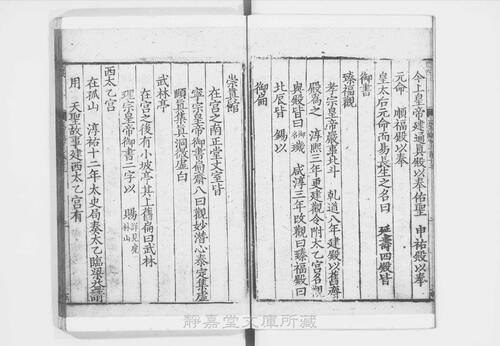 今上皇帝建通真殿以奉佑聖 申祐殿以奉
元命 順福殿以奉
皇太后元命而易長生之名曰 延壽四殿皆
御書
臻福觀
孝宗皇帝嚴事北斗 乾道八年建殿以舊齋
殿為之 淳熙三年更建觀今附太乙宮名
與殿皆曰 璣 咸淳三年改觀曰臻福殿曰
北辰皆 錫以
御扁
崇真館
在宮之南正堂文室皆
寧宗皇帝御書扁齋八曰觀妙潛心泰定集虛
頤真集真洞微虛白
武林亭
在宮之後有小坡亭其上舊扁曰武林
理宗皇帝御書二字以 賜 詳見虎林山
西太乙宮
在孤山 淳祐十二年太史局奏太乙臨梁益請
用 天聖故事建西太乙宮有
靜嘉堂文庫所藏